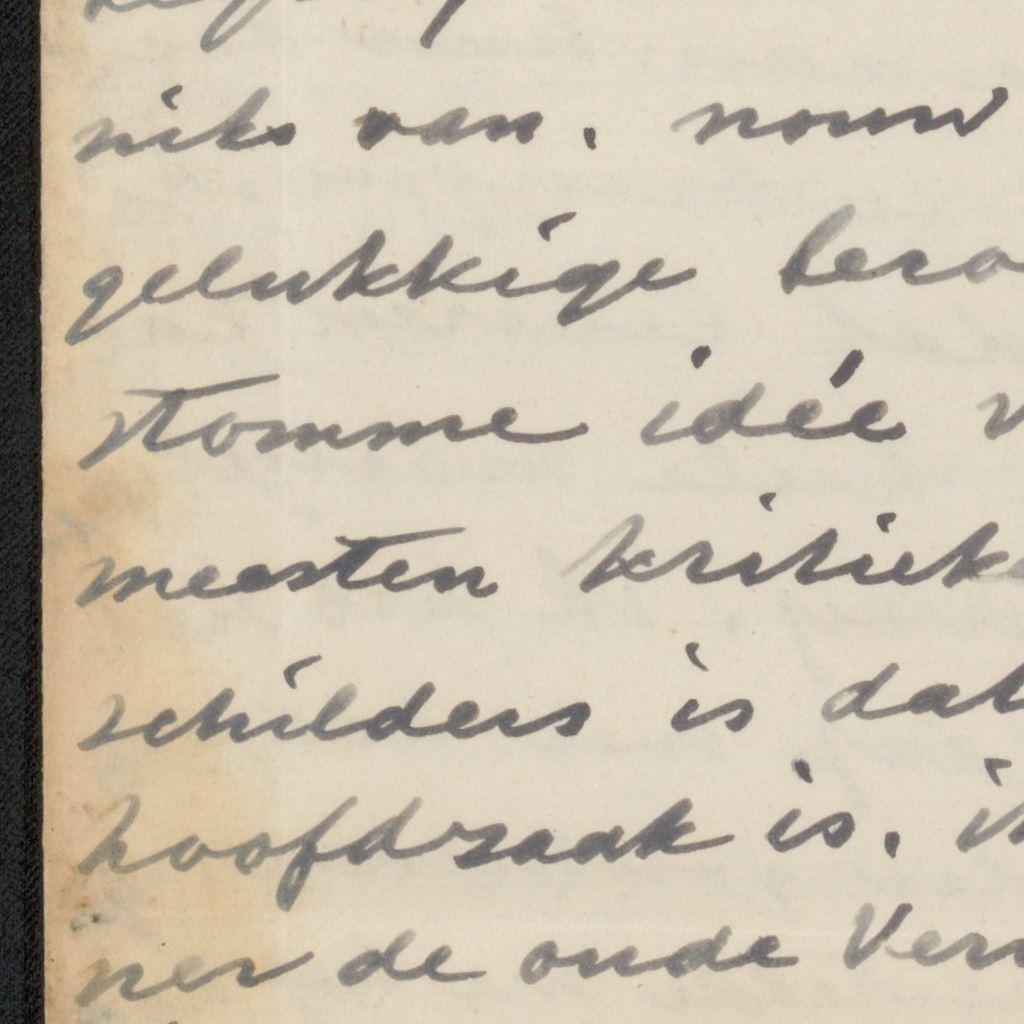 niks van. nouw
gelukkige
stomme idée
meesten kritiek
schilders is dat
hoofdzaak is.
ner de oude Ver